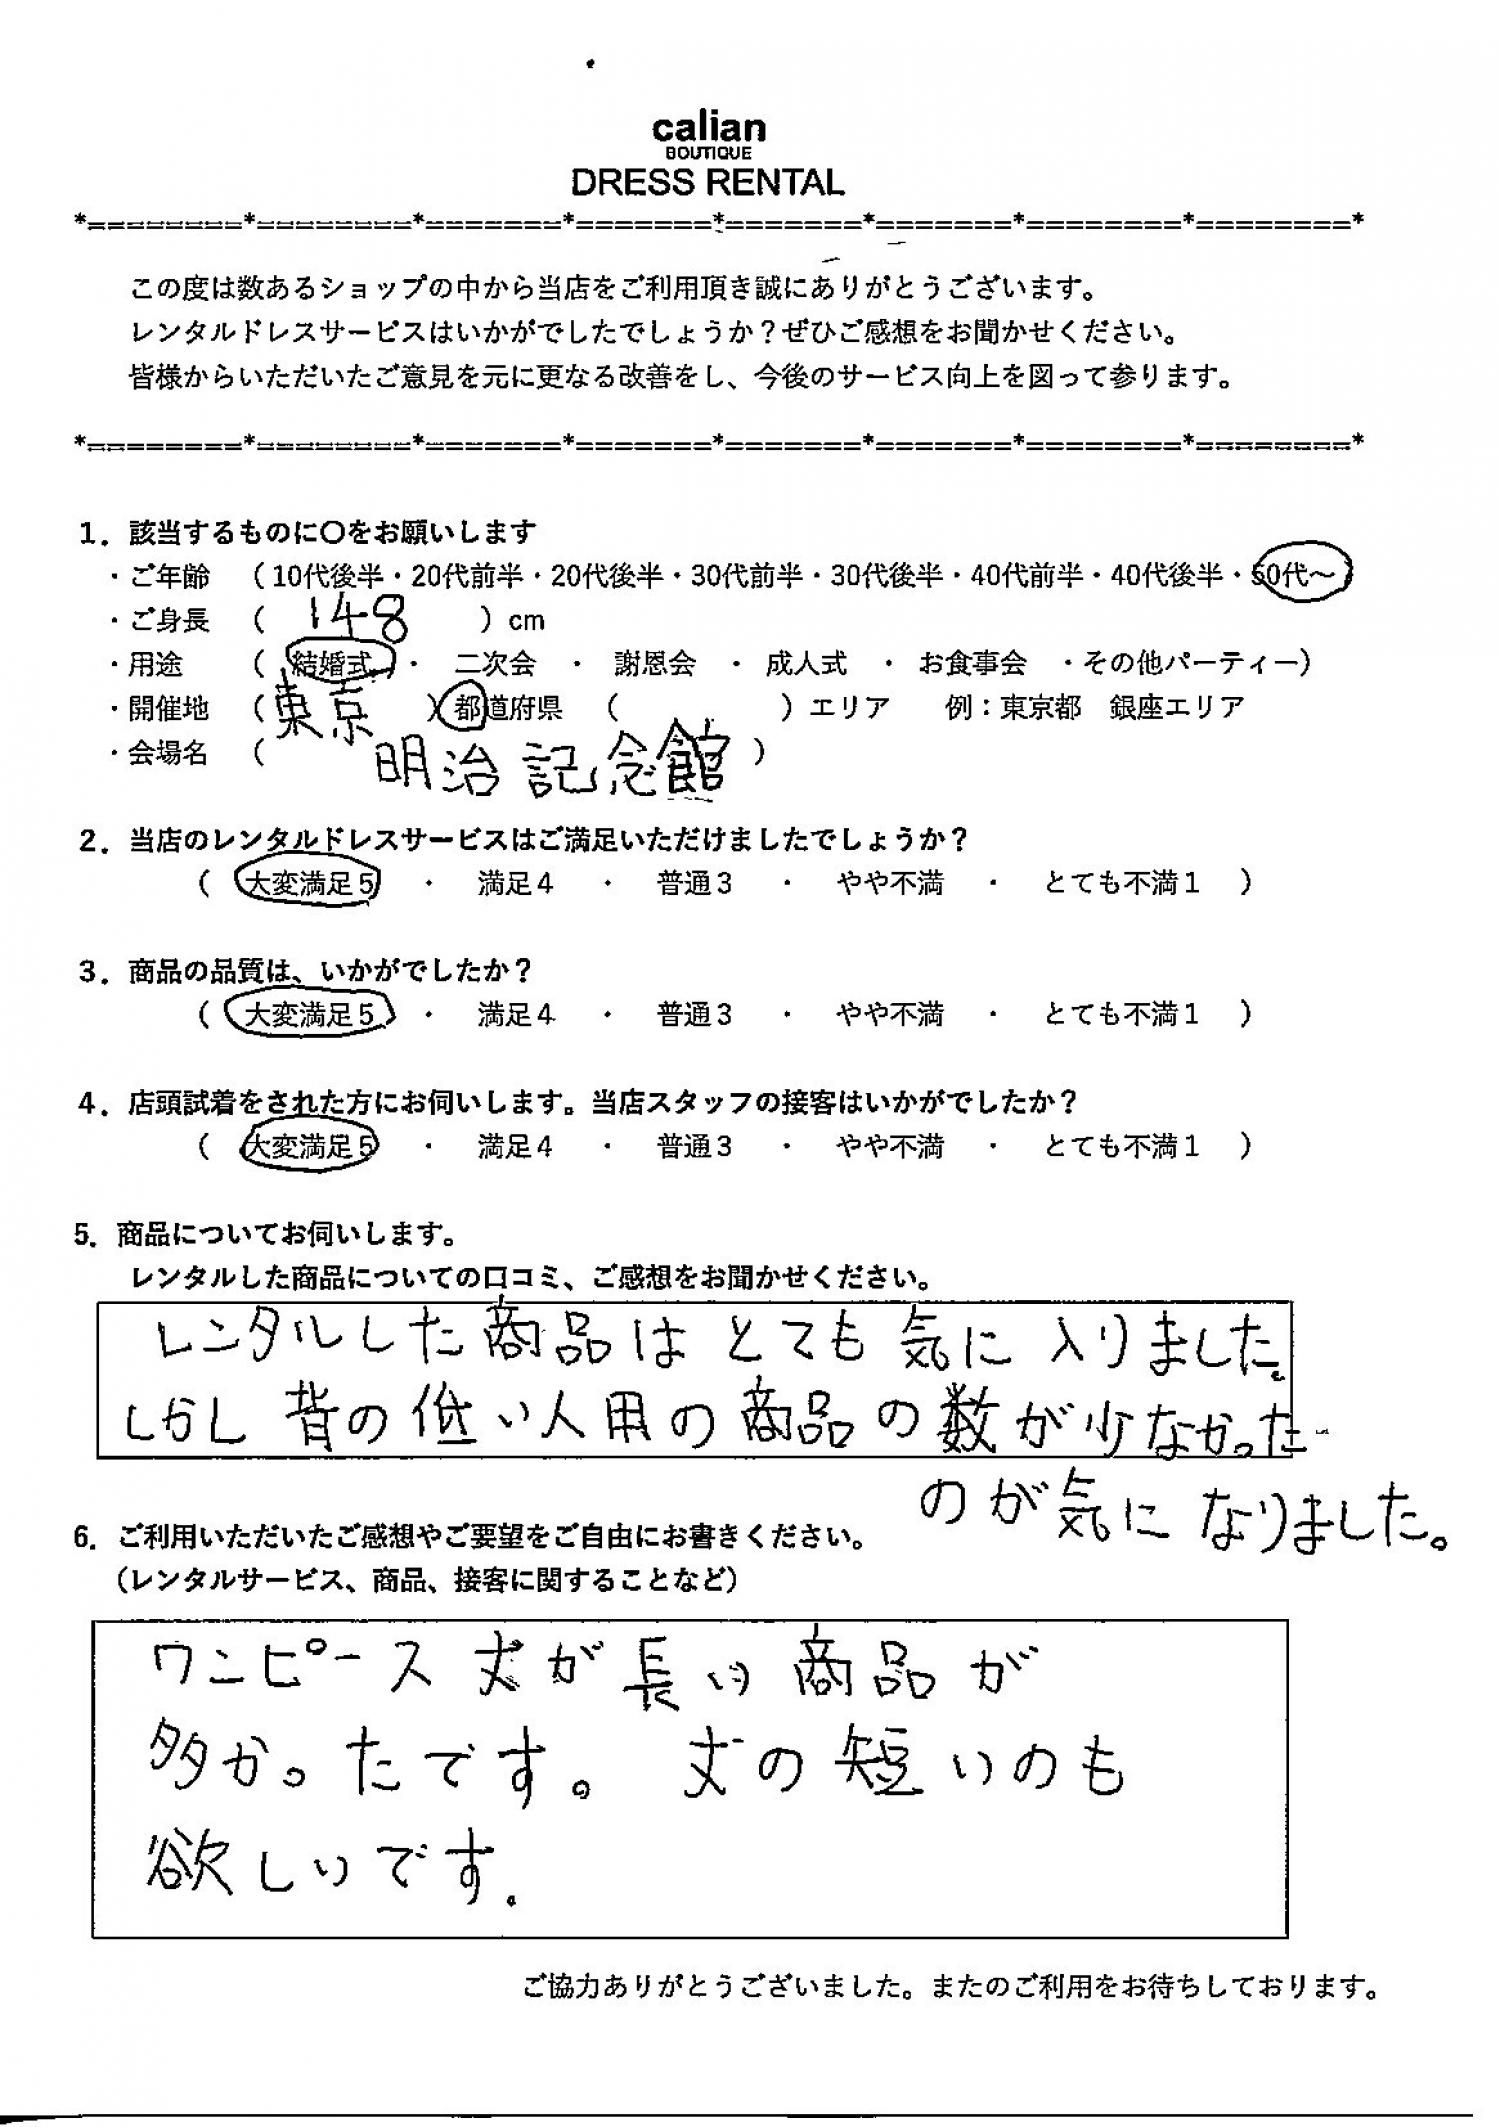 calian
BOUTIQUE
DRESS RENTAL
*========*========*=======*=======*=======*=======*========*========*
この度は数あるショップの中から当店をご利用頂き誠にありがとうございます。
レンタルドレスサービスはいかがでしたでしょうか？ぜひご感想をお聞かせください。
皆様からいただいたご意見を元に更なる改善をし、今後のサービス向上を図って参ります。
*========*========*=======*=======*=======*=======*========*========*
1．該当するものに〇をお願いします
・ご年齢　（10代後半・20代前半・20代後半・30代前半・30代後半・40代前半・40代後半・50代～）
・ご身長　（　148　）cm
・用途　（　結婚式　・　二次会　・　謝恩会　・　成人式　・　お食事会　・その他パーティー）
・開催地　（東京　）都道府県　（　　　）エリア　　例：東京都　銀座エリア
・会場名　（　明治記念館　）
2．当店のレンタルドレスサービスはご満足いただけましたでしょうか？
（　大変満足5　・　満足4　・　普通3　・　やや不満　・　とても不満1　）
3．商品の品質は、いかがでしたか？
（　大変満足5　・　満足4　・　普通3　・　やや不満　・　とても不満1　）
4．店頭試着をされた方にお伺いします。当店スタッフの接客はいかがでしたか？
（　大変満足5　・　満足4　・　普通3　・　やや不満　・　とても不満1　）
5．商品についてお伺いします。
レンタルした商品についての口コミ、ご感想をお聞かせください。
レンタルした商品はとても気に入りました。
しかし背の低い人用の商品の数が少なかった
のが気になりました。
6．ご利用いただいたご感想やご要望をご自由にお書きください。
（レンタルサービス、商品、接客に関することなど）
ワンピース丈が長い商品が
多かったです。丈の短いのも
欲しいです。
ご協力ありがとうございました。またのご利用をお待ちしております。